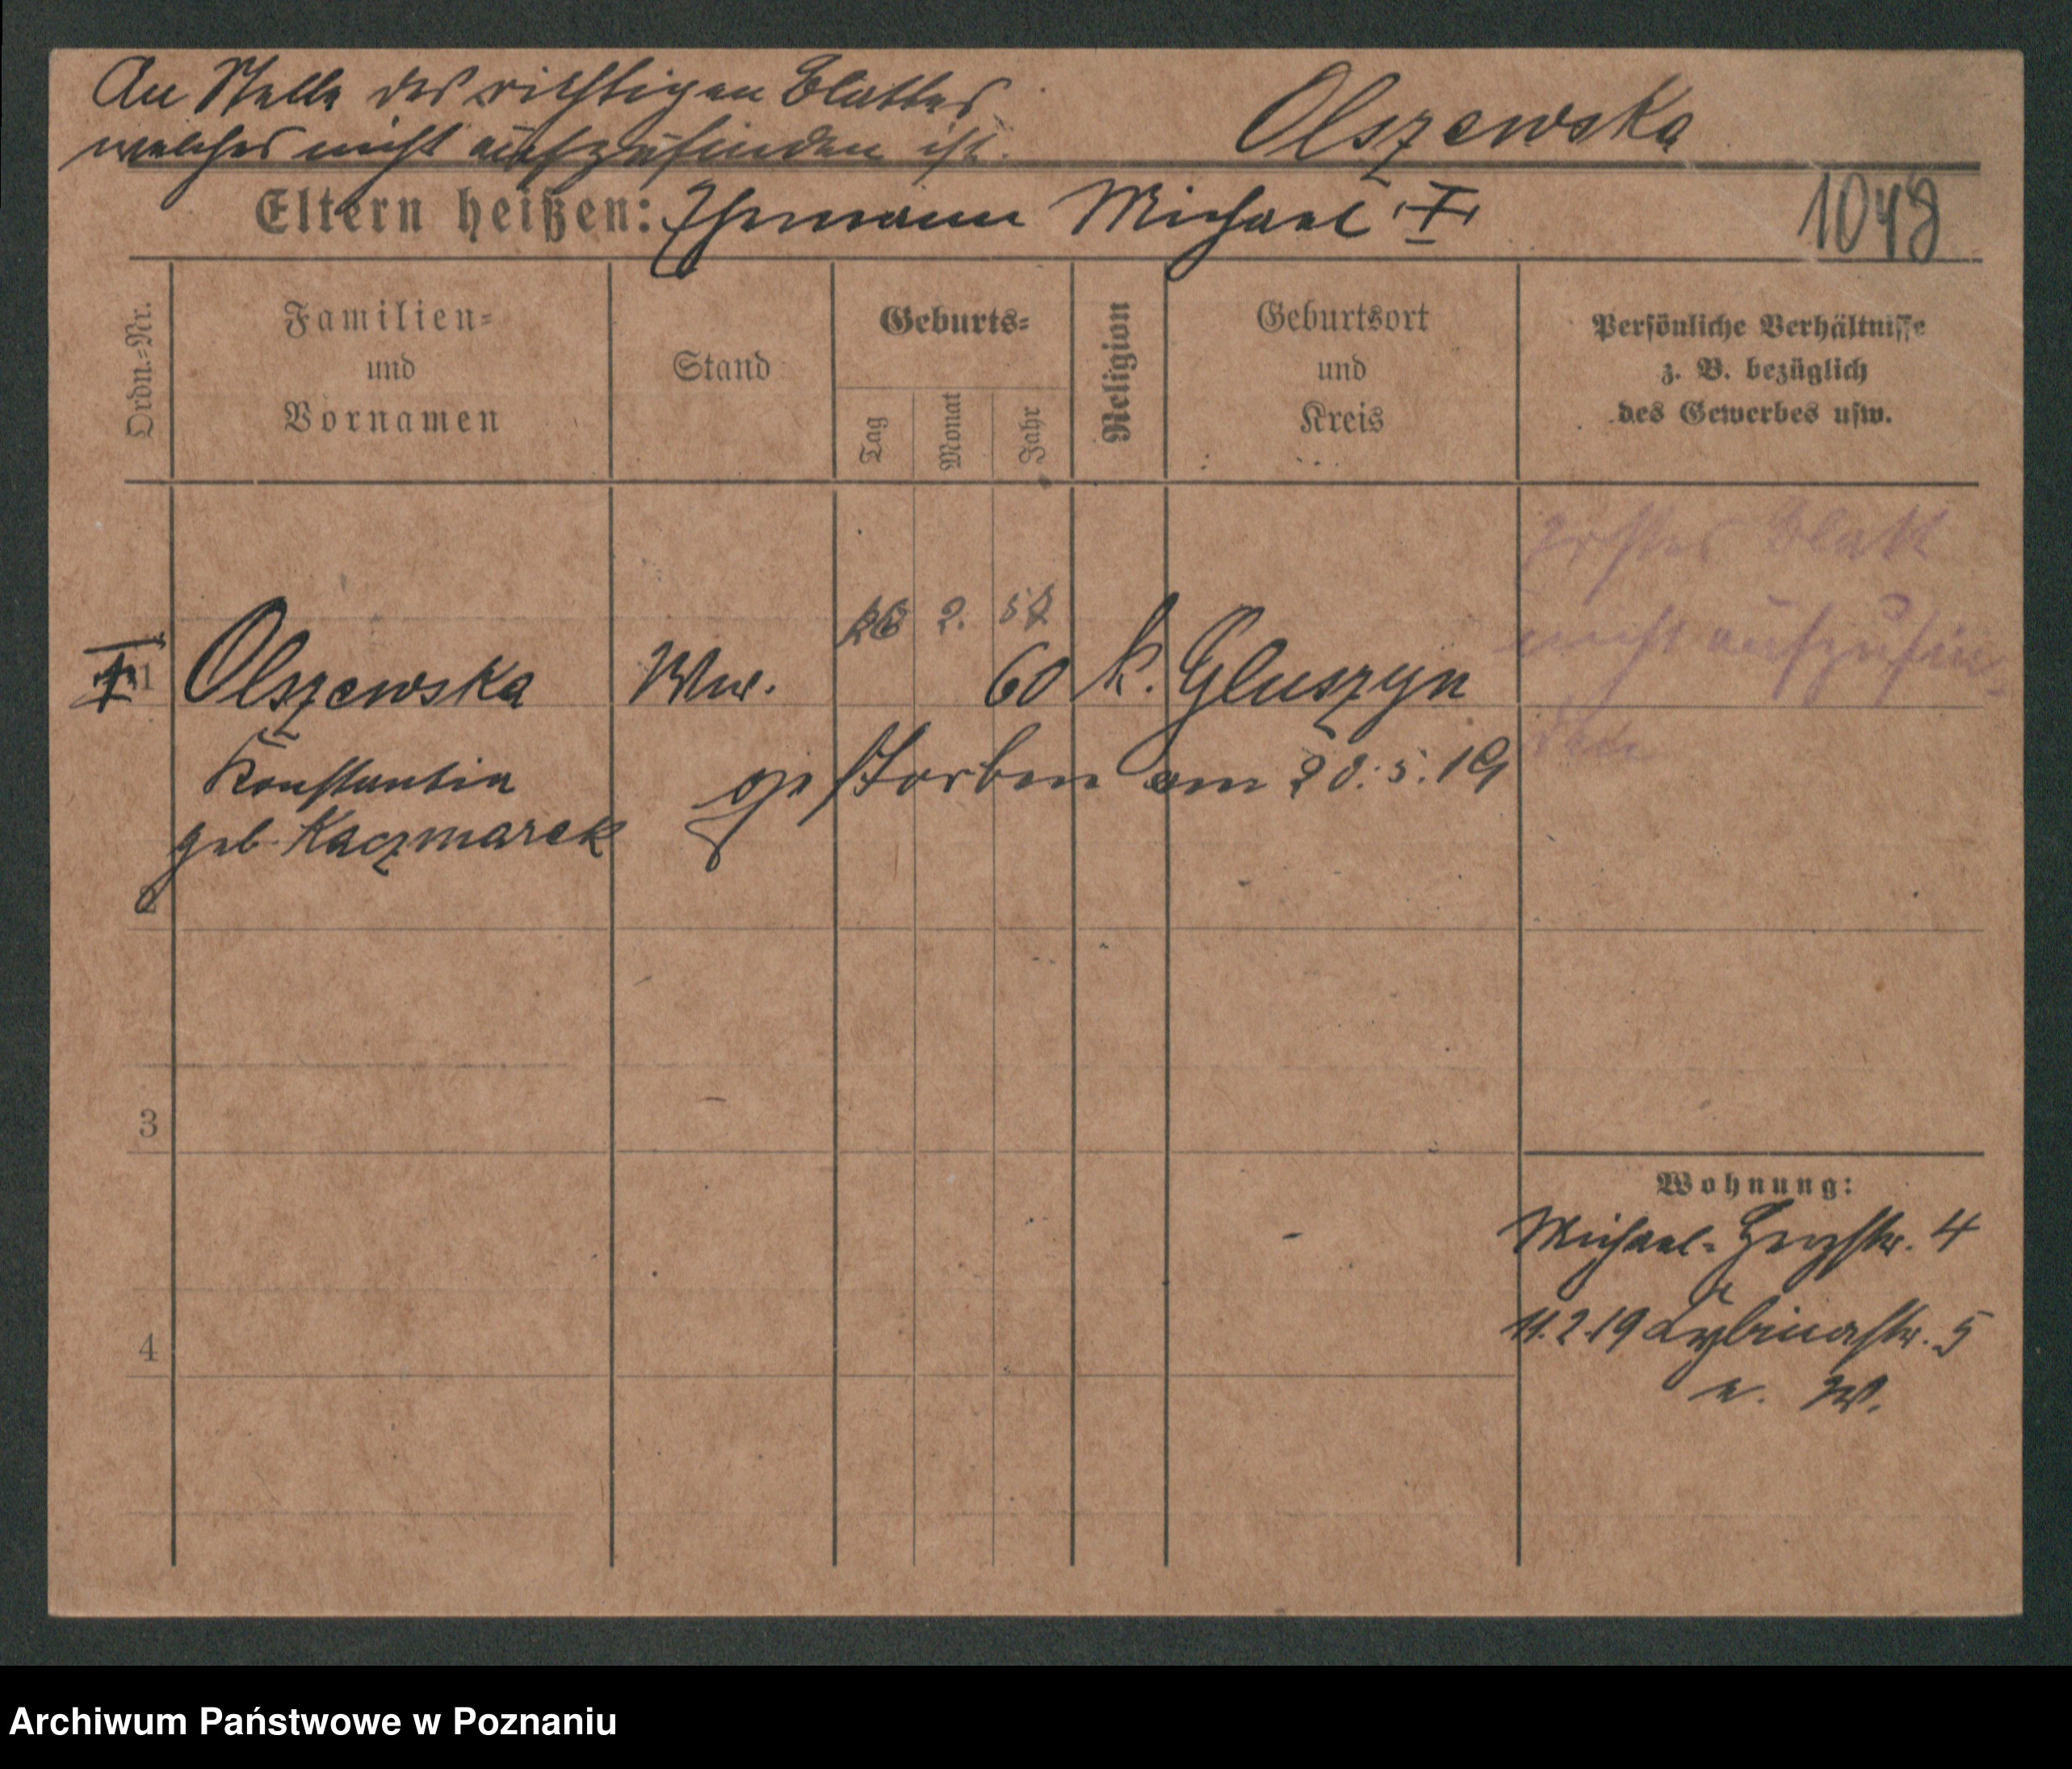 An Stelle des richtigen Blattes
welches nicht aufzufinden ist.
Olszewska
Eltern heißen: Ehemann Michael †
1048
Ordn.=Nr.
Familien=
und
Vornamen
Stand
Geburts=
Tag
Monat
Jahr
Religion
Geburtsort
und
Kreis
Persönliche Verhältnisse
z. B. bezüglich
des Gewerbes usw.
erstes Blatt
nicht aufzufin-
den
2. 57
1 Olszewska Ww. 60 k. Gluszyn
Konstantia gestorben am 20.5.19
geb. Kaczmarek
2
3
4
Wohnung:
Michael-Herzstr. 4
11.2.19 Cybinastr. 5
n. W.
Archiwum Państwowe w Poznaniu